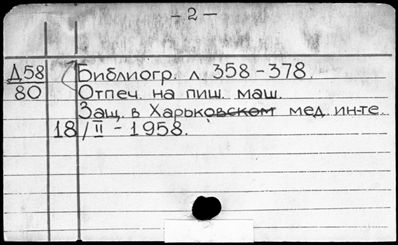 - 2 -
Д58 Библиогр. л. 358-378.
80 Отпеч. на пиш. маш.
Защ. в Харьковском мед. ин-те
18/II - 1958.